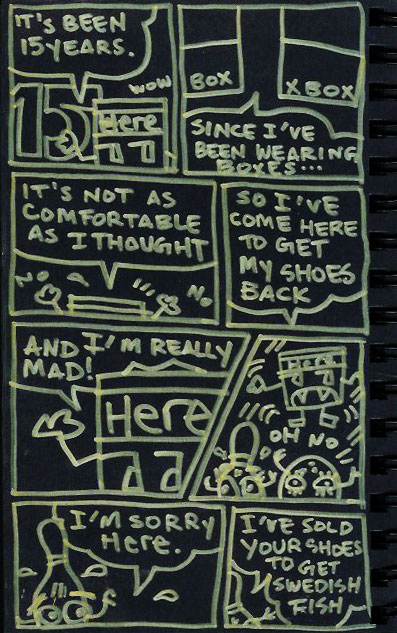 IT'S BEEN
15 YEARS.
WOW
15
Here
BOX
XBOX
SINCE I'VE
BEEN WEARING
BOXES...
IT'S NOT AS
COMFORTABLE
AS I THOUGHT
NO
NO
SO I'VE
COME HERE
TO GET
MY SHOES
BACK
AND I'M REALLY
MAD!
Here
Here
OH NO
I'M SORRY
Here.
I'VE SOLD
YOUR SHOES
TO GET
SWEDISH
FISH